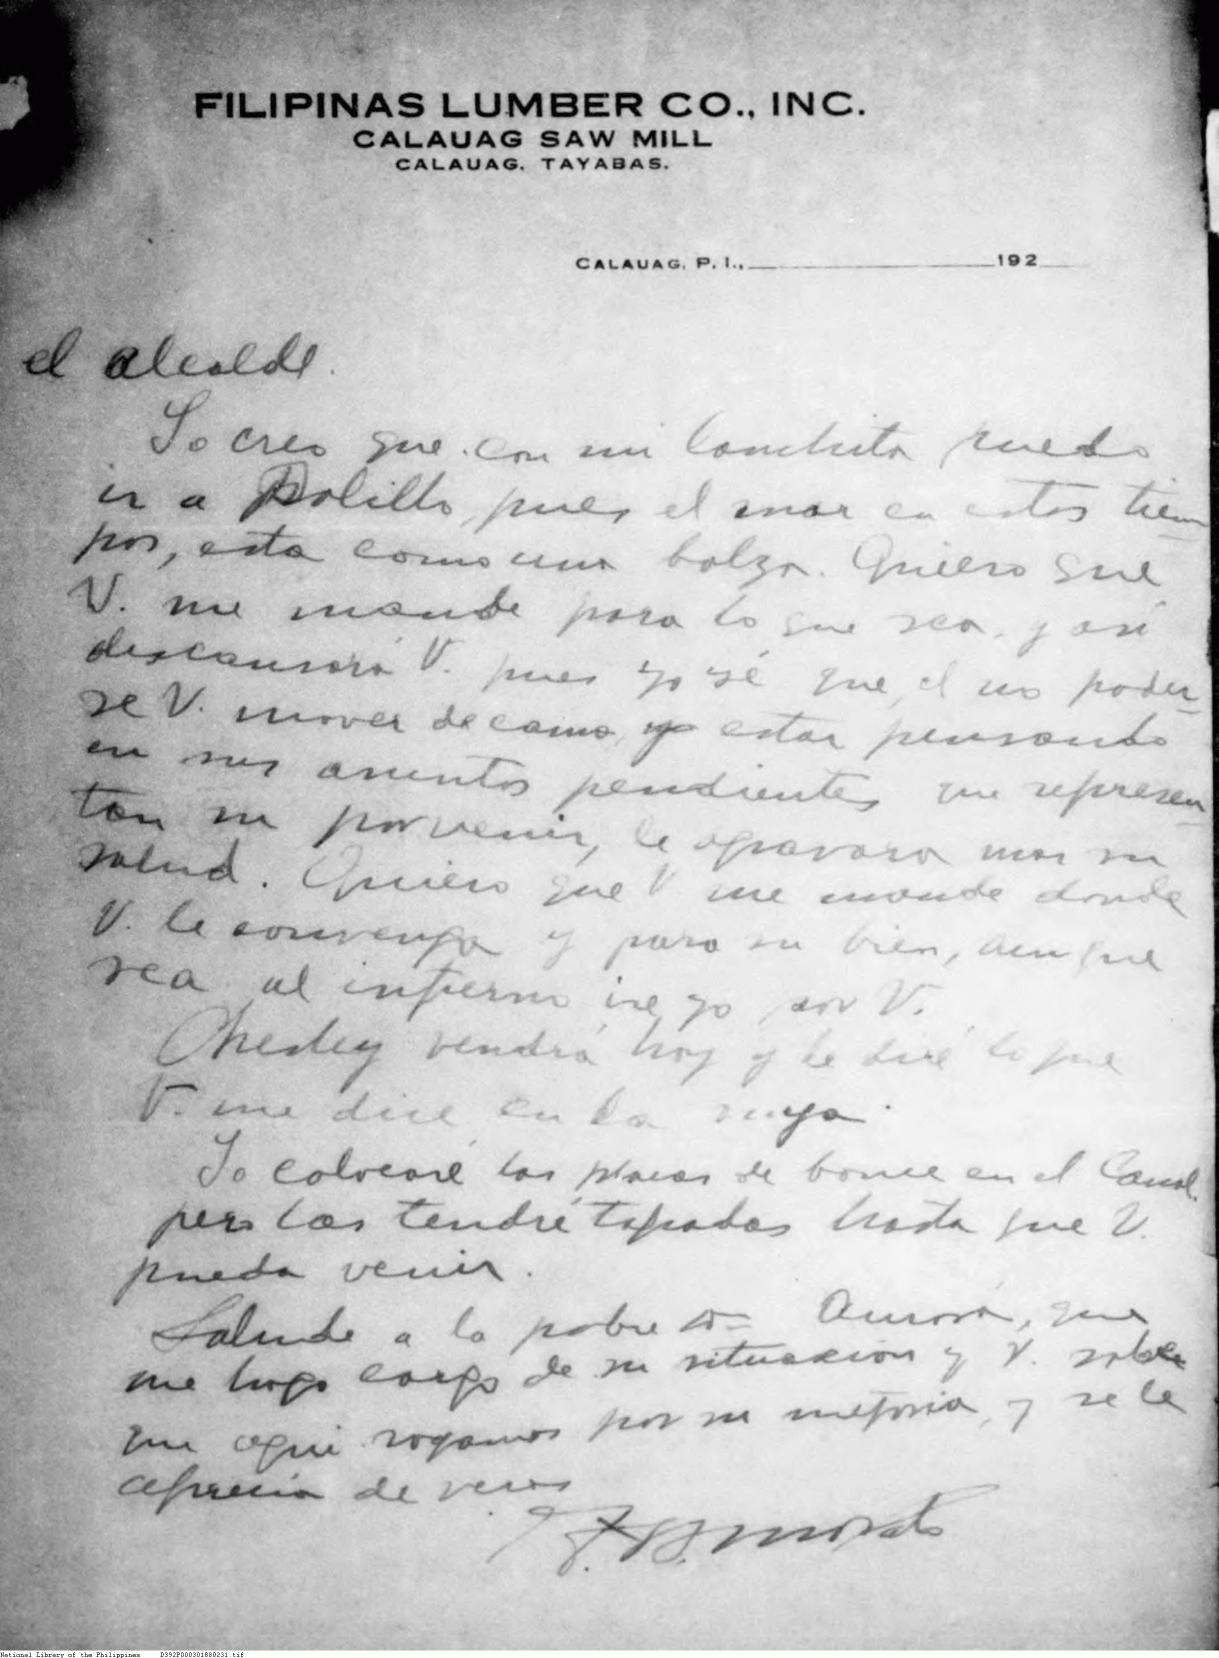 FILIPINAS LUMBER CO., INC.
CALAUAG SAW MILL
CALAUAG, TAYABAS.
CALAUAG, P. I., 192
el alcalde.
Yo creo que con mi lanchita puedo
ir a Polillo, pues el mar en estos tiem
pos, esta como una balza. Quiero que
V. me mande para lo que sea, y asi
descansará V. pues yo sé que, el no poder
se V. mover de cama, y estar pensando
en sus asuntos pendientes que represen
tan su porvenir, le agravara mas su
salud. Quiero que V. me mande donde
V. le convenga y para su bien, aunque
sea al infierno iré yo por V.
vendrá hoy y le diré lo que
V. me dice en la suya.
Yo colocaré las placas de bonce en el Canal.
pero las tendré tapadas hasta que V.
pueda venir.
Salude a la pobre Da Aurora, que
me hago cargo de su situacion y V. sabe
que aqui rogamos por su mejoria, y se le
aprecia de veras
Morato
National Library of the Philippines D392P000301880231.tif